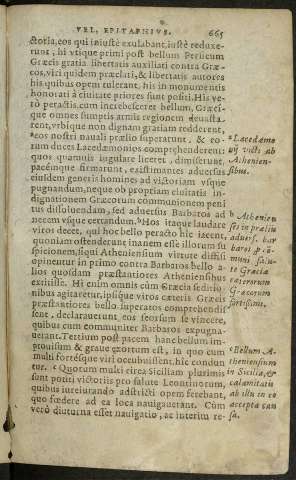 VEL, EPITAPHIVS. 665
ctoria, eos qui iniustè exulabant, iustè reduxe-
runt, hi vtique primi post bellum Persicum
Græcis gratia libertatis auxiliati contra Græ-
cos, viri quidem præclari, & libertatis autores
his, quibus opem tulerant, his in monumentis
honorati à ciuitate priores sunt positi. His ve-
rò peractis, cum increbesceret bellum, Græci-
que omnes sumptis armis regionem deuasta-
rent, vrbique non dignam gratiam redderent,
eos nostri nauali prælio superatunt, & eo-
rum duces Lacedæmonios comprehenderent:
quos quamuis iugulare liceret, dimiserunt,
pacémque firmarunt, existimantes aduersus
eiusdem generis homines ad victoriam vsque
pugnandum, neque ob propriam ciuitatis in-
dignationem Græcorum communionem peni
tus dissoluendam, sed aduersus Barbaros ad
necem vsque certandum. Hos itaque laudare
viros decet, qui hoc bello peracto hîc iacent,
quoniam ostenderunt inanem esse illorum su
spicionem, siqui Atheniensium virtute diffisi
opinentur in primo contra Barbaros bello a-
lios quosdam præstantiores Atheniensibus
extitisse. Hi enim omnis cùm Græcia seditio-
nibus agitaretur, ipsíque viros cæteris Græcis
præstantiores bello superatos comprehendis-
sent, declarauerunt eos seorsum se vincere,
quibus cum communiter Barbaros expugna-
uerant. Tertium post pacem hanc bellum im-
prouisum & graue exortum est, in quo cum
multi fortésque viri occubuissent, hîc condun
tur. Quorum multi circa Siciliam plurimis
sunt potiti victoriis pro salute Leontinorum,
quibus iureiurando adstricti opem ferebant,
quo fœdere ad ea loca nauigauerant. Cùm
verò diuturna esset nauigatio, ac interitu re-
Lacedæmo
nij victi ab
Athenien-
sibus.
b Athenien
ses in prælio
aduers. bar
baros cō-
muni salu-
te Græcia
cæterorum
Græcorum
fortissimi.
Bellum A-
theniensium
in Sicilia, &
calamitatis
ab illis in eo
accepta cau
sa.